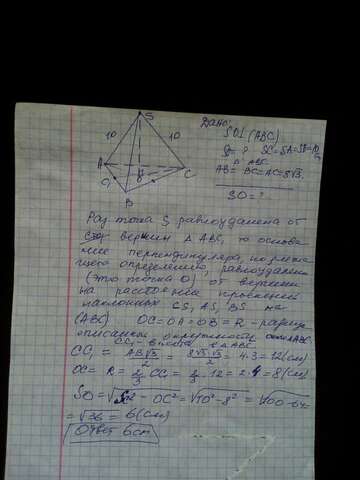 S
10
10
A
C
C₁
B
Дано:
SO⊥(ABC)
SC=SA=SB=10
AB=BC=AC=8√3
SO=?
Раз точка S равноудалена от
вершин Δ ABC, то основа
ние перпендикуляра,
равноудалена
(это точка O) от вершин
на расстояние проекций
наклонных CS, AS, BS на
(ABC) OC=OA=OB=R - радиус
описанной окружности
CC₁ - высота Δ ABC
CC₁ = AB√3/2 = 8√3·√3/2 = 4·3=12(см)
OC= R = 2/3 CC₁ = 2/3·12=2·4=8(см)
SO=√SC²-OC² =√10²-8² =√100-64
=√36 = 6(см)
Ответ 6см